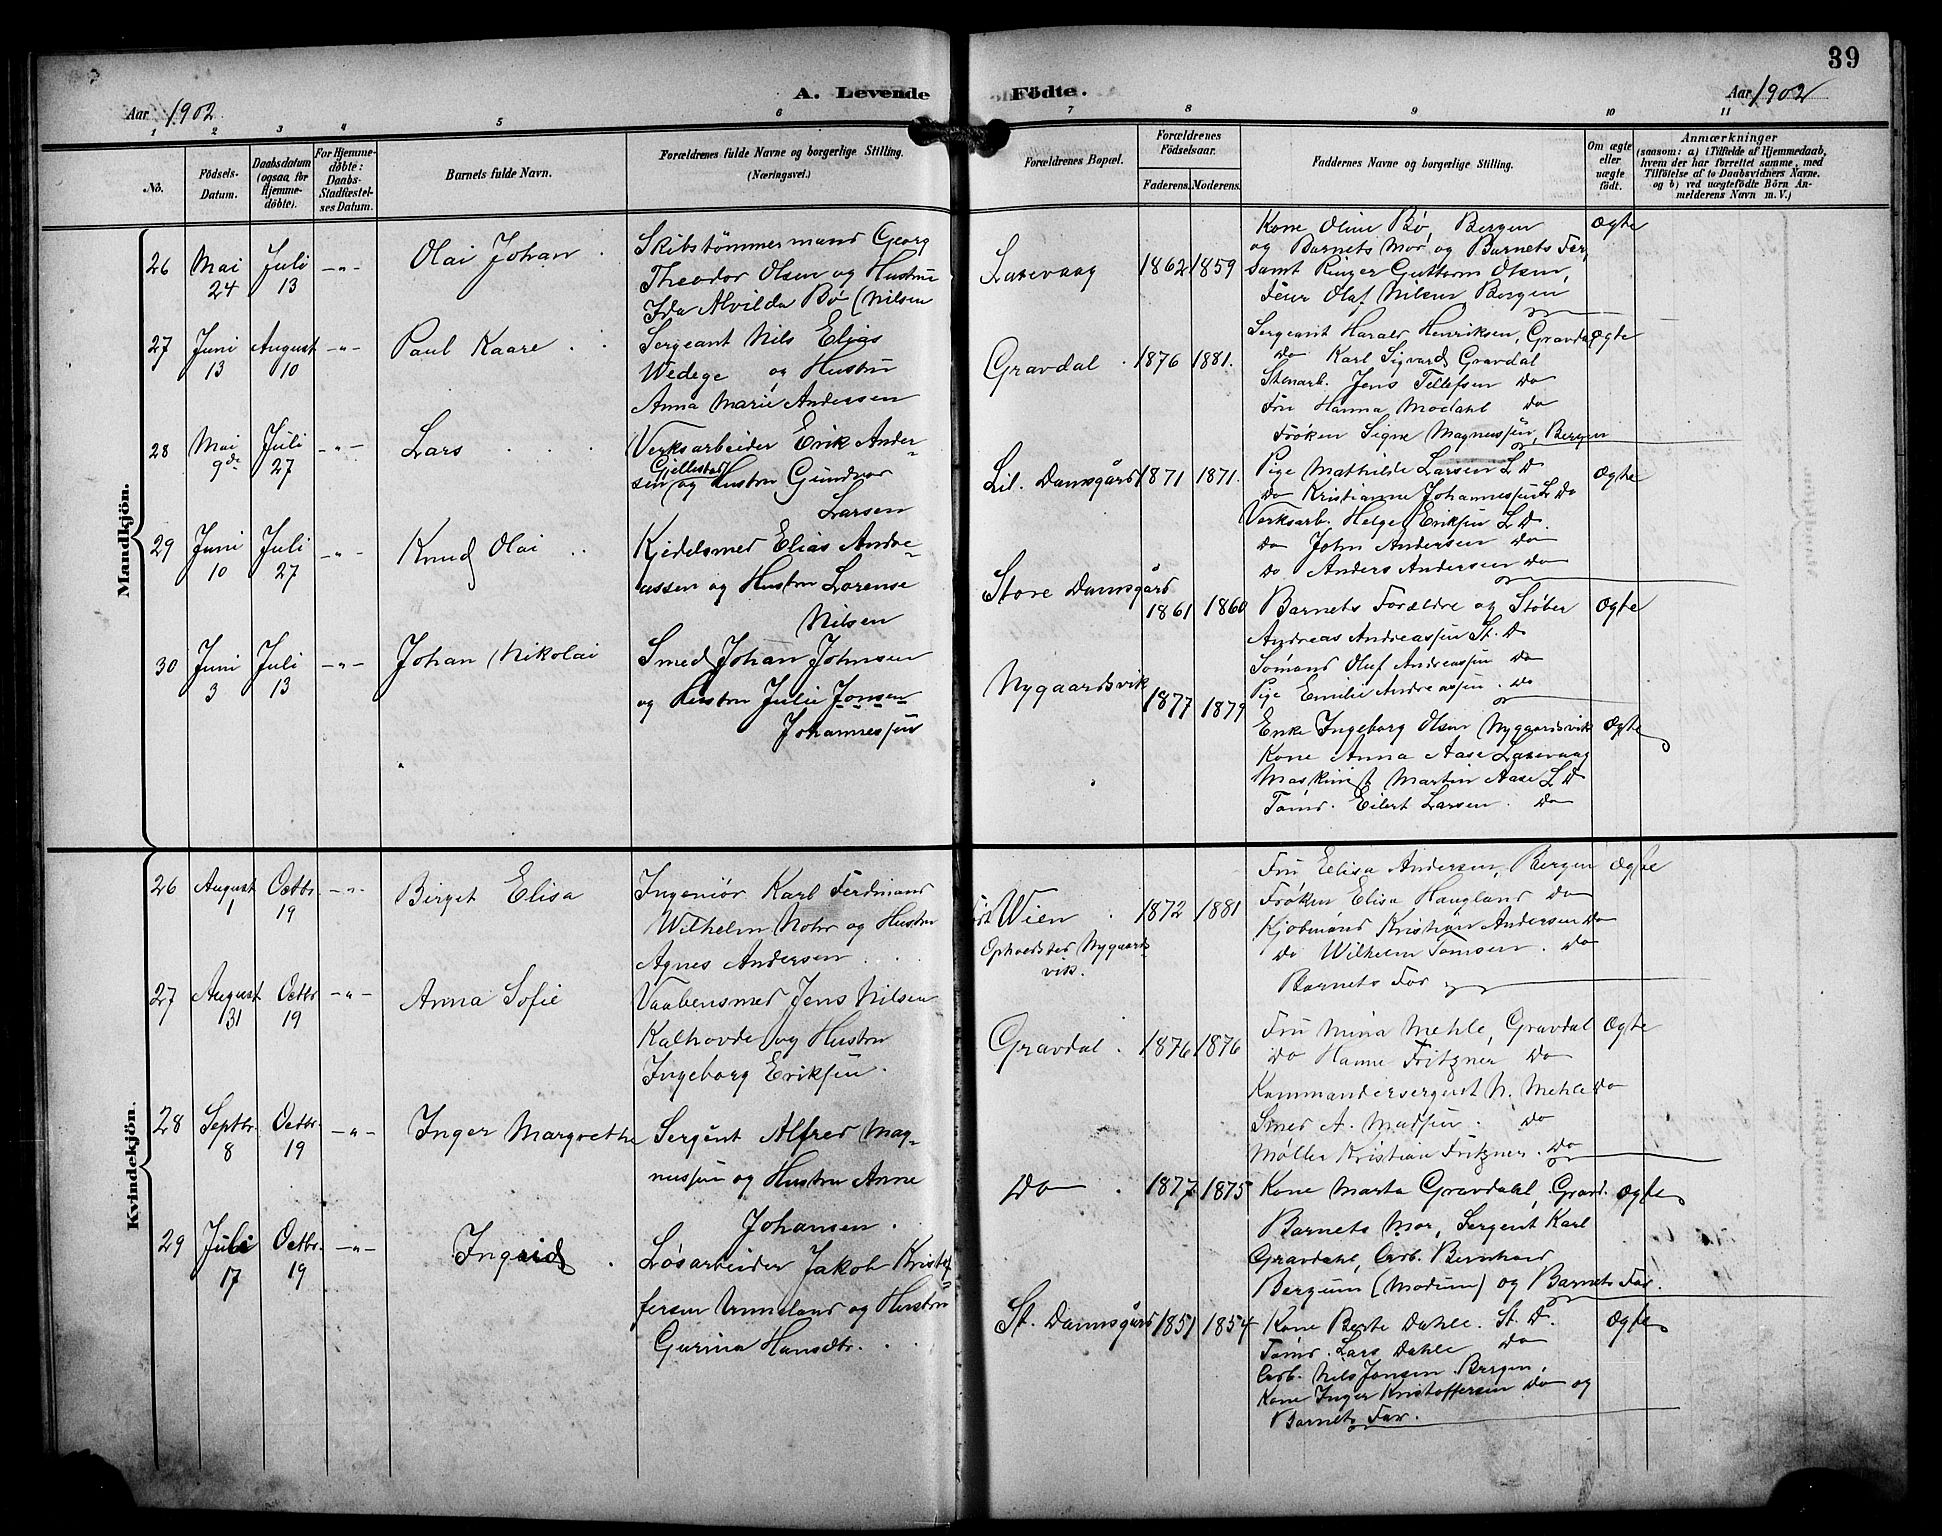 39
A. Levende Födte.
Aar 1902
Aar 1902
1 2 3 4 5 6 7 8 9 10 11
No.
Födsels-Datum.
Daabsdatum (ogsaa for Hjemme-döbte).
For Hjemme-döbte: Daabs-Stadfæstel-ses Datum.
Barnets fulde Navn.
Forældrenes fulde Navne og borgerlige Stilling. (Næringsvei.)
Forældrenes Bopæl.
Forældrenes Födselsaar.
Faderens. Moderens.
Faddernes Navne og borgerlige Stilling.
Om ægte eller uægte födt.
Anmærkninger
(saasom: a) i Tilfælde af Hjemmedaab,
hvem der har forrettet samme, med
Tilföielse af to Daabsvidners Navne.
og b) ved uægtefödte Börn An-
melderens Navn m. V.)
Mandkjön.
26 Mai 24 Juli 13 -"- Olai Johan
Skibstømmermand Georg
Theodor Olsen og Hustru
Ida Alvilda Bø (Nilsen
Laxevaag 1862 1859
Kone Oline Bø, Bergen
og Barnets Mor og Barnets Far,
samt Ringer Guttorm Olsen,
Feier Olaf Nilsen Bergen
Ægte
27 Juni 13 August 10 -"- Paul Kaare
Sergeant Nils Elias
Wedege og Hustru
Anna Marie Andersen
Gravdal 1876 1881.
Sergeant Harald Henriksen, Gravdal
do Karl Sigvard Gravdal
Stenarb. Jens Tellefsen do
Fru Hanna Modahl do
Frøken Signe Magnussen, Bergen
Ægte
28 Mai 9de Juli 27 -"- Lars
Verksarbeider Erik Ander-
sen (Gjellestad) og Hustru Gundvor
Larsen
Lil. Damsgård 1871 1871.
Pige Mathilde Larsen L D
do Kristianne Johannessen L do
Verksarb. Helge Eriksen L D.
do John Andersen do
do Anders Andersen do
Ægte
29 Juni 10 Juli 27 -"- Knud Olai
Kjedelsmed Elias Andre-
assen og Hustru Lorense
Nilsen
Store Damsgård 1861 1860
Barnets Forældre og Støber
Andreas Andreassen St. D
Sømand Oluf Andreassen do
Pige Emilie Andreassen. do
Ægte
30 Juni 3 Juli 13 -"- Johan Nikolai
Smed Johan Johnsen
og Hustru Julie Jonsen
Johannessen
Nygaardsvik 1877 1879
Enke Ingeborg Olsen Nygaardsvik
Kone Anna Aase Laxevaag
Maskinist Martin Aase L D
Tømd. Eilert Larsen. do
Ægte
Kvindekjön.
26 August 1 Octbr. 19 -"- Birget Elisa
Ingeniør Karl Ferdinand
Wilhelm Nohr og Hustru
Agnes Andersen
Wien
Opholdsted Nygaards-
vik.
1872 1881
Fru Elisa Andersen, Bergen
Frøken Elisa Haugland do
Kjøbmand Kristian Andersen do
do Wilhelm Tomsen. do
Barnets Far
Ægte
27 August 31 Octbr 19 -"- Anna Sofie
Vaabensmed Jens Nilsen
Kalhovde og Hustru
Ingeborg Eriksen.
Gravdal. 1876 1876
Fru Mina Mehle, Gravdal
do Hanne Fritzner do
Kommandersergent N. Mehle do
Smed A. Madsen. do
Møller Kristian Fritzner. do
Ægte
28 Septbr. 8 Octbr. 19 -"- Inger Margrethe
Sergent Alfred Mag-
nussen og Hustru Anne
Johansen.
do 1877 1875
Kone Marta Gravdahl, Gravd.
Barnets Mor, Sergent Karl
Gravdahl, Arb. Bernhard
Bergum (Modum) og Barnets Far.
Ægte
29 Juli 17 Octbr. 19 -"- Ingrid
Løsarbeider Jakob Kristof-
fersen Unneland og Hustru
Gurina Hansdtr.
St. Damsgård 1851 1854
Kone Berte Dahle. St. D.
Tømd. Lars Dahle do
Arb. Nils Jonsen Bergen.
Kone Inger Kristoffersen do og
Barnets Far.
Ægte